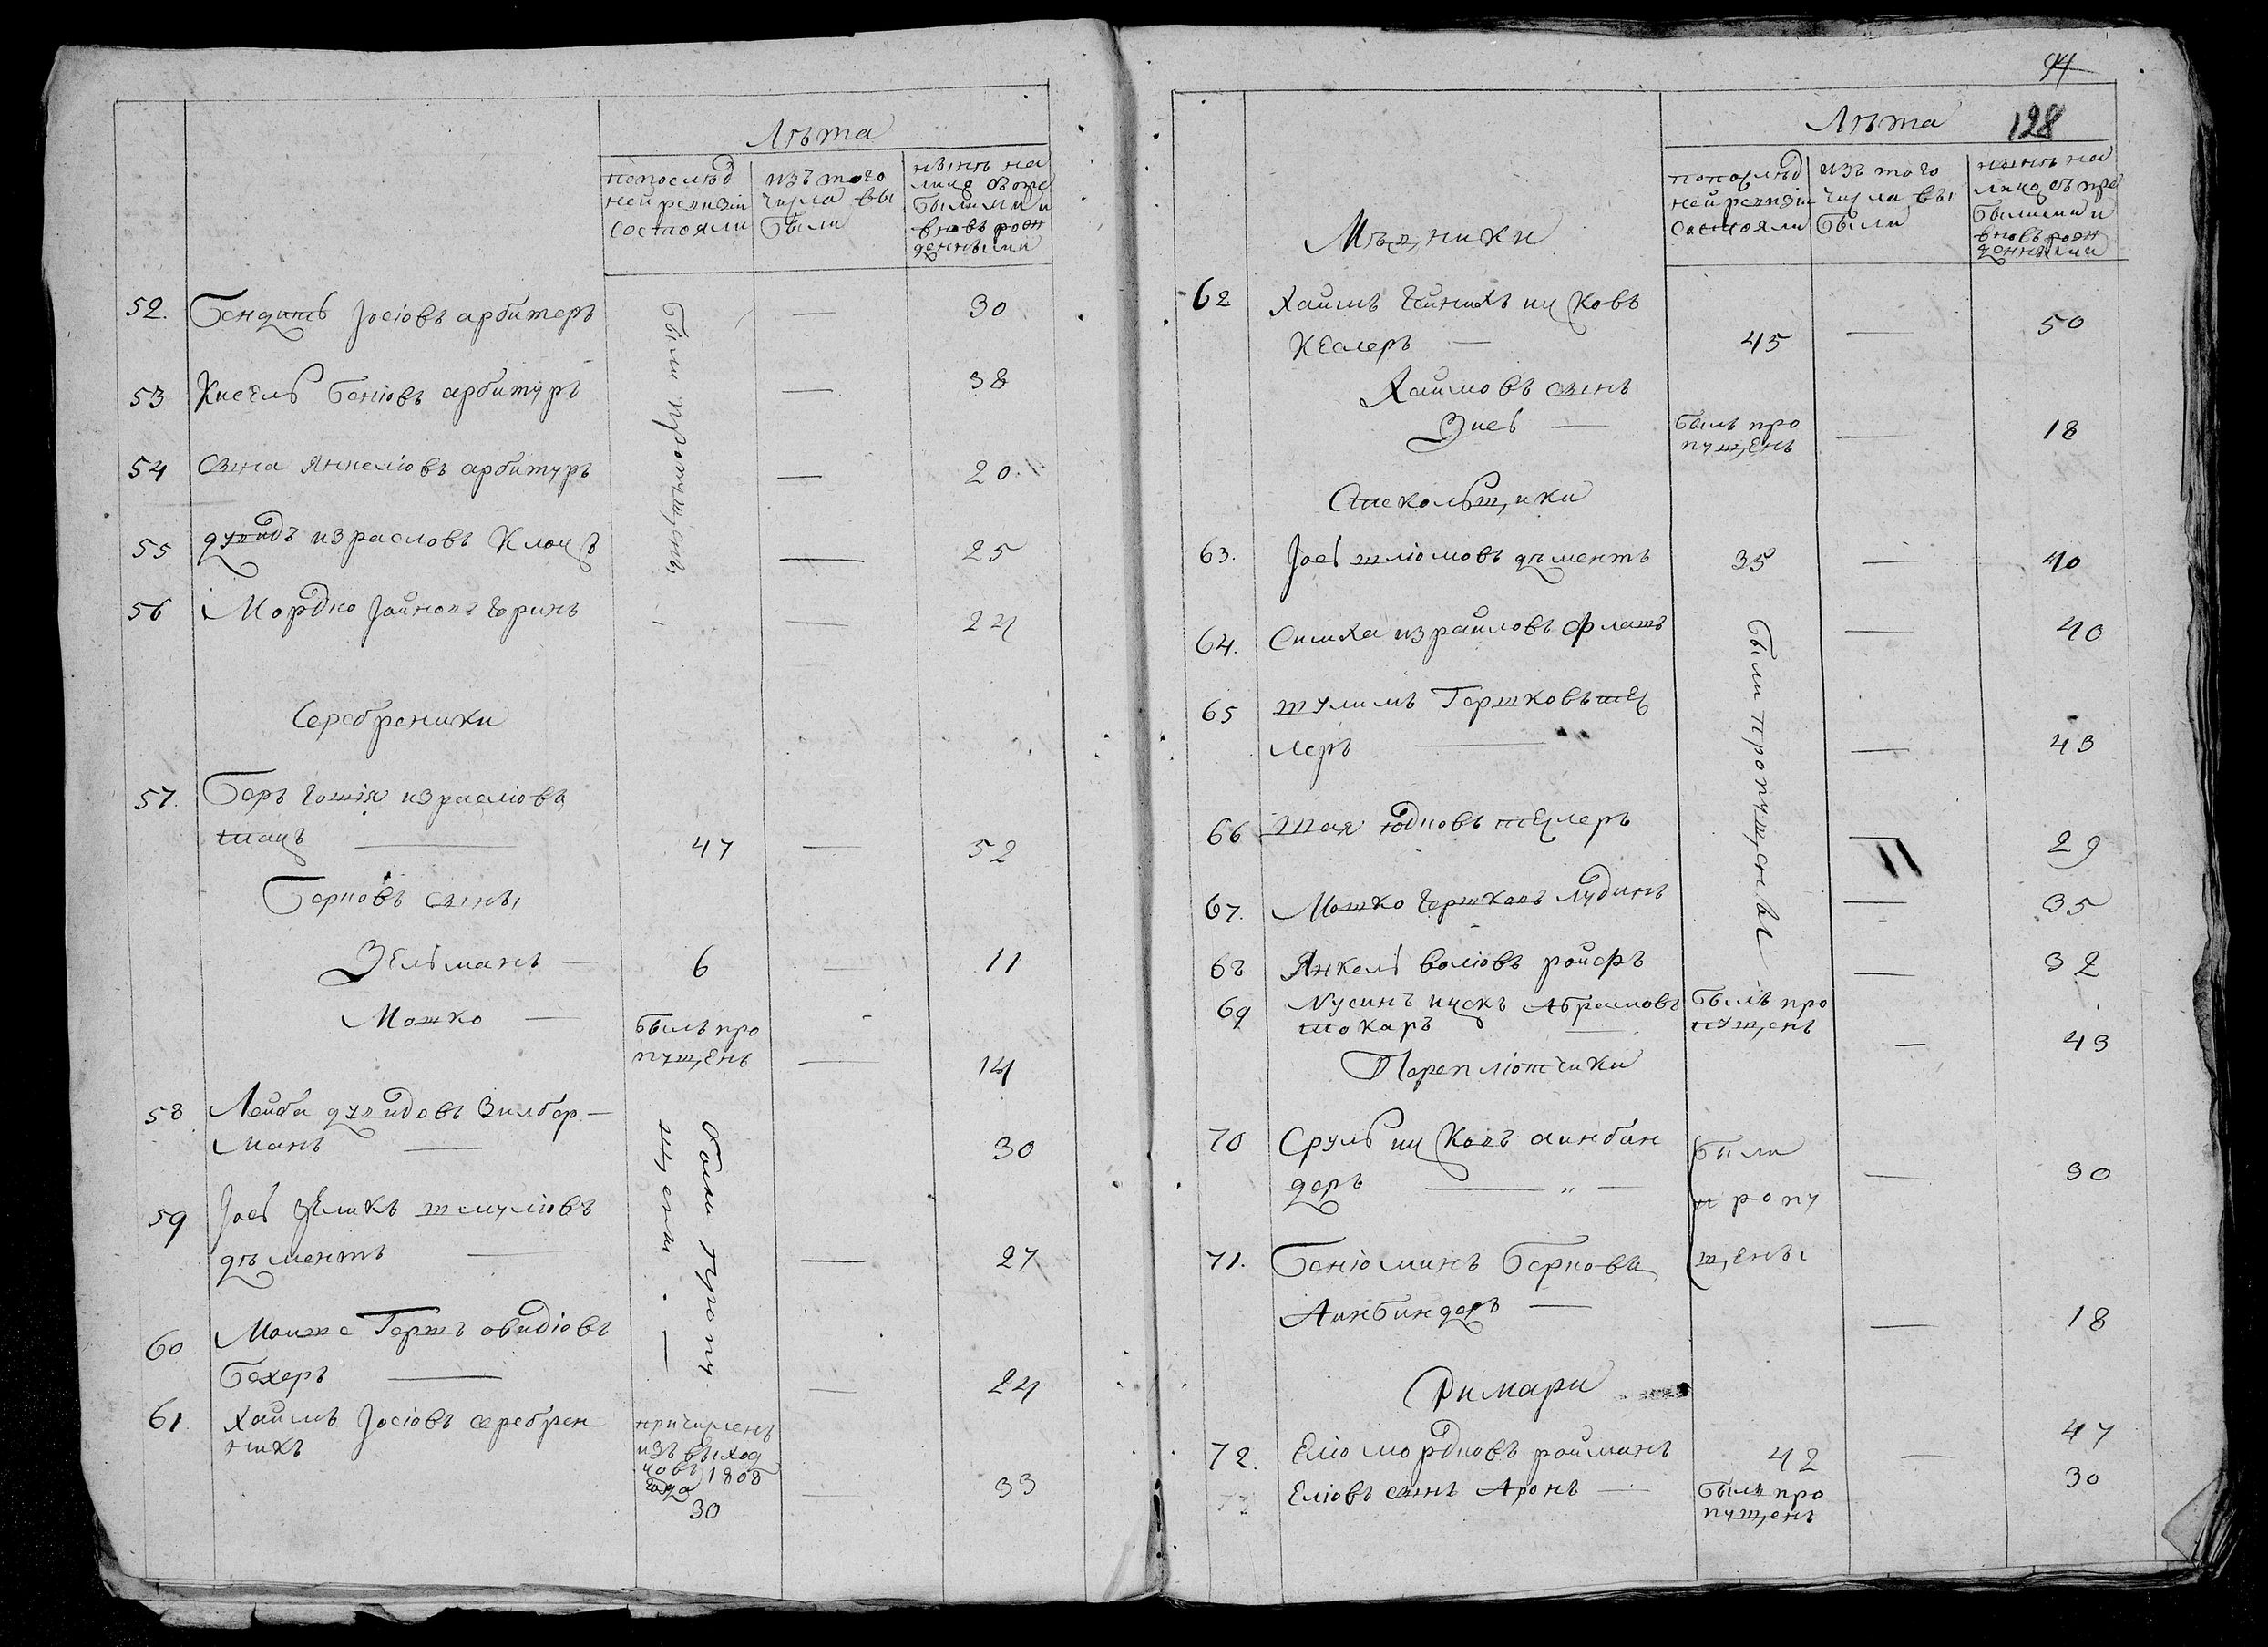 Лѣта
непослѣд
ней ревизіи
состояли
изъ того
числа вы
были
нынѣ на
лицо съ пре
былыми и
вновь рож
денными
52. Бендитъ Іосіовъ арбитеръ — 30
были пропущены
53 Кисель Беніовъ арбитуръ — 38
54 Сына Янкеліовъ арбитуръ — 20
55 дувидъ израеловъ Клоцъ — 25
56 Мордко Іойновъ Горинъ — 24
Серебреники
57. Беръ израеліовъ
шацъ — 47 — 52
Берковъ сыны
Зельманъ — 6 — 11
Мошко — былъ про
пущенъ — 14
58 Лейба дувидовъ Зилбер—
манъ — 30
были пропу
щены. —
59 Іось Зеликъ шмуліовъ
дѣментъ — — 27
60 Моише Гершъ овидіовъ
Бехеръ — — 24
61. Хаимъ Іосіовъ серебрен
никъ
причисленъ
изъ выход
цовъ 1808
года
30 — 33
94
Лѣта 128
непослѣд
ней ревизіи
состояли
изъ того
числа вы
были
нынѣ на
лицо съ пре
былыми и
вновь рож
денными
Мѣдники
62 Хаимъ Гейнихъ ицковъ
Кеслеръ — 45 — 50
Хаимовъ сынъ
Зись — былъ про
пущенъ — 18
Стекольщики
63. Іось шліомовъ дѣментъ 35 — 40
64. Симха израиловъ Флатъ — 40
были пропущены
65 шулимъ Гершковъ
леръ — — 43
66 Шая Юдковъ — 29
67. Мошко Гершковъ Лудинъ — 35
68 Янкель воліовъ ройфъ — 32
69 Нусинъ ицекъ Абрамовъ былъ про
токаръ — пущенъ — 43
Перепліотчики
70 Сруль ицковъ аинбин
деръ — " — — 30
были
пропу
щены
71. Беніоминъ Берковъ
Аинбиндеръ — — 18
Римари
72. Еліо мордковъ роиманъ 42 — 47
73 Еліовъ сынъ Аронъ — былъ про
пущенъ 30